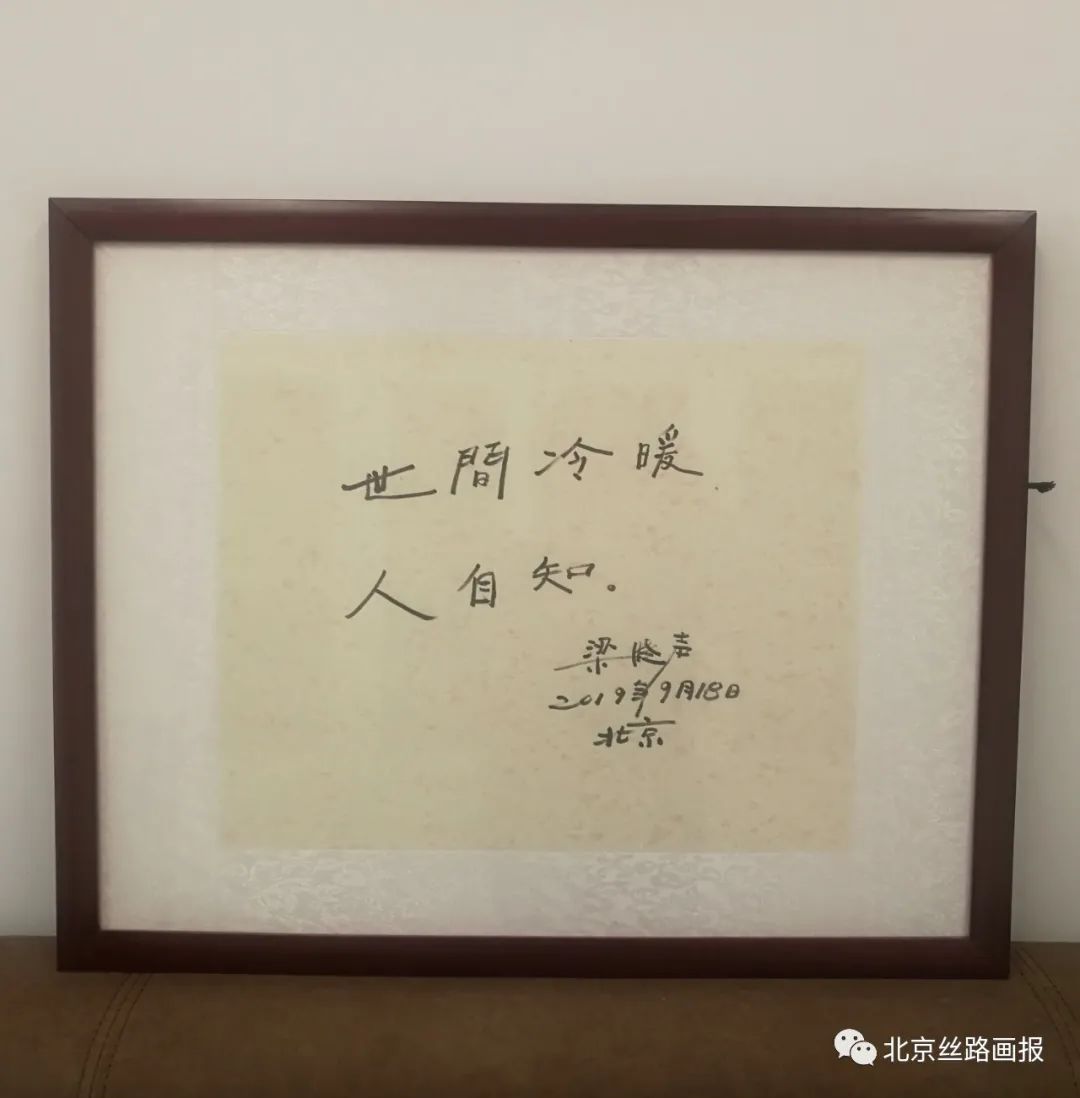 世間冷暖
人自知。
梁晓声
2019年9月18日
北京
北京丝路画报